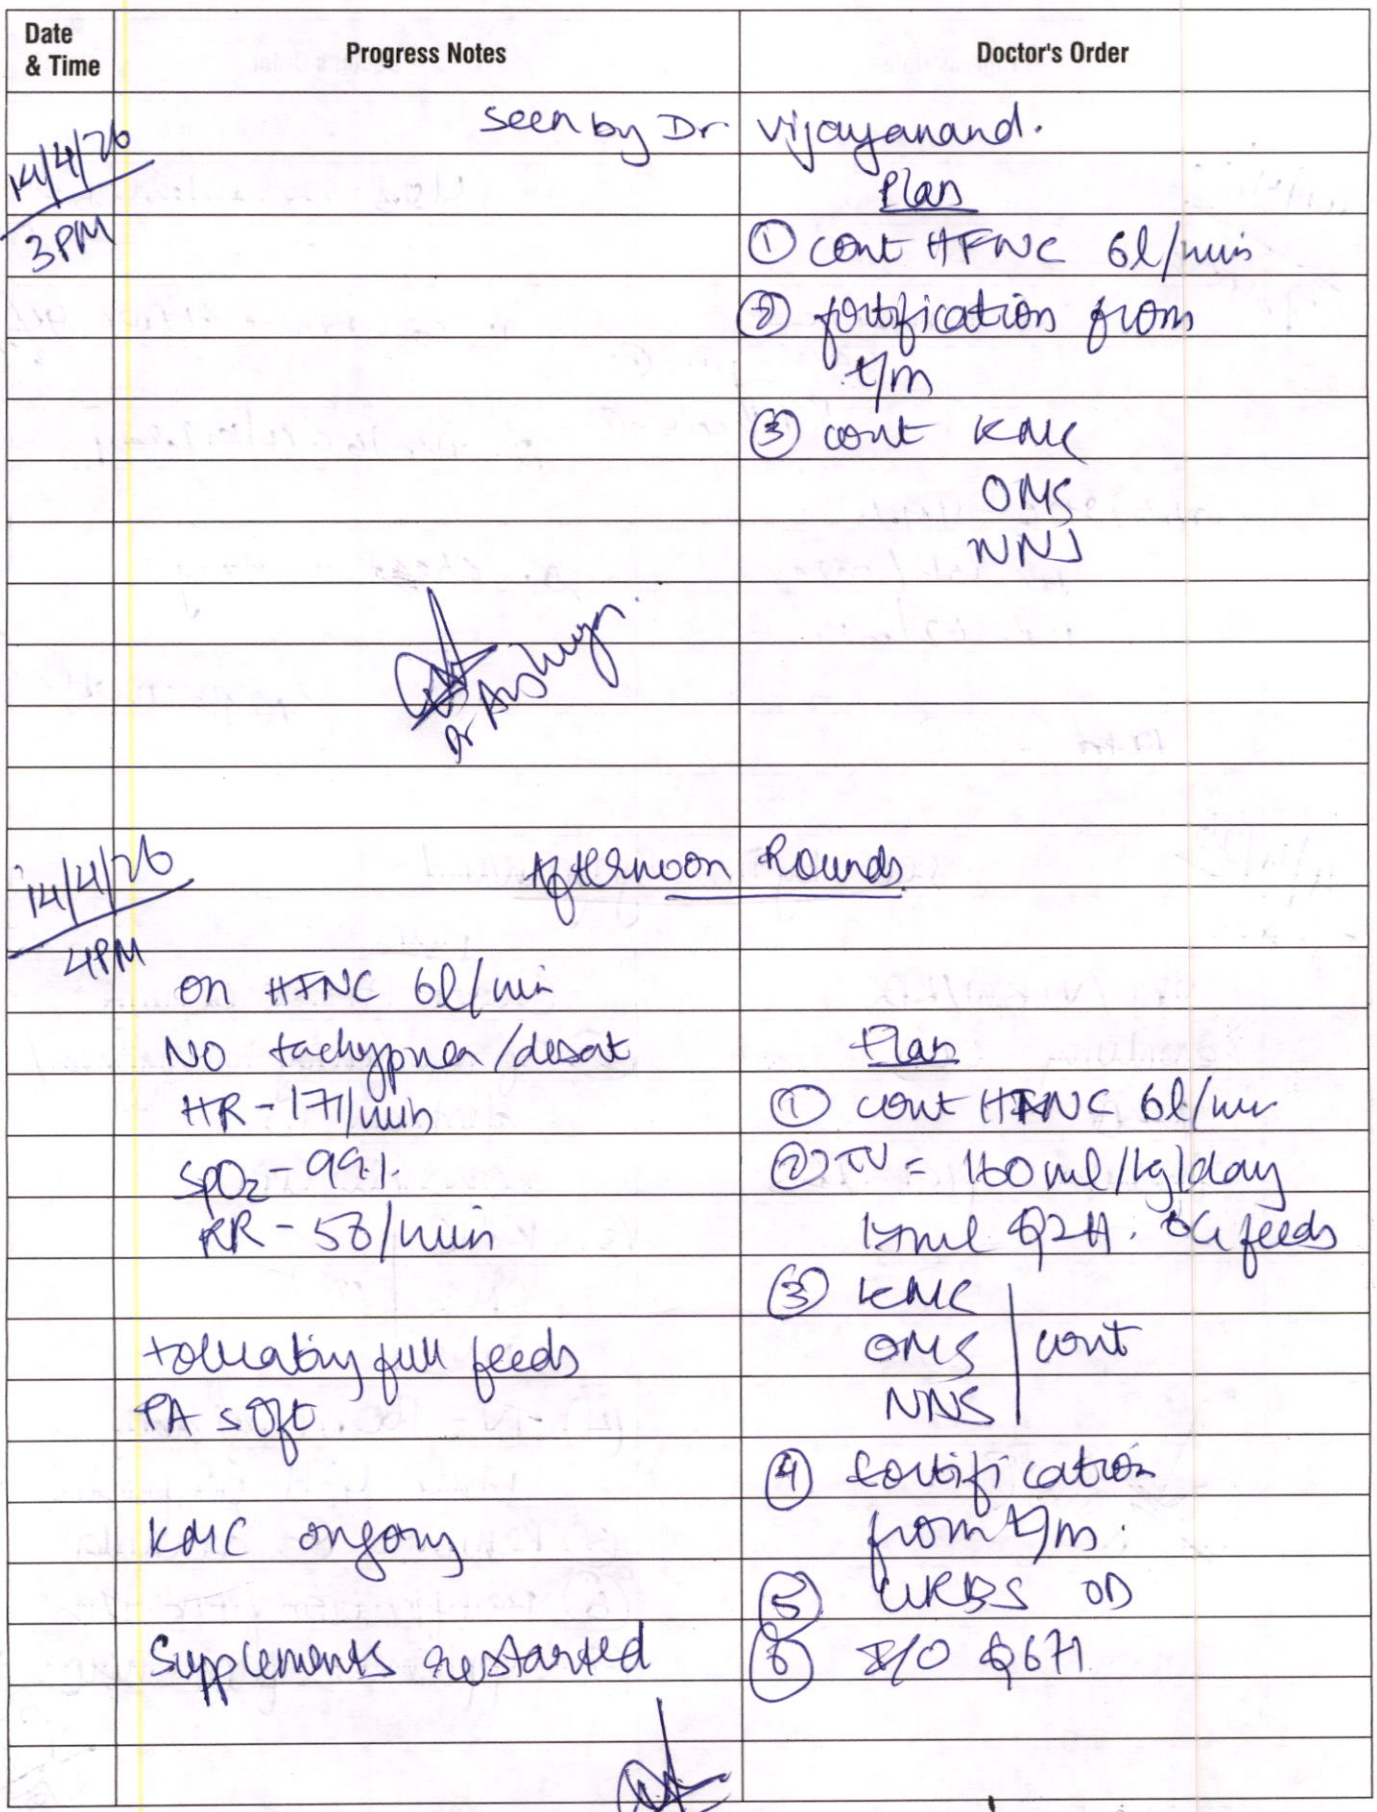 Date & Time Progress Notes Doctor's Order
14/4/26
3PM
Seen by Dr Vijayanand.
Plan
① cont HFNC 6l/min
② fortification from
t/m
③ cont KMC
OMS
NNS
Dr
14/4/26
4PM
Afternoon Rounds
on HFNC 6l/min
NO tachypnea/desat
HR - 171/min
SpO2 - 99%
RR - 58/min
tolerating full feeds
PA soft
KMC ongoing
Supplements restarted
Plan
① cont HFNC 6l/min
② = 160ml/kg/day
Q2H. OG feeds
③ KMC
OMS cont
NNS
④ fortification
from t/m.
⑤ GRBS OD
⑥ I/O Q6H